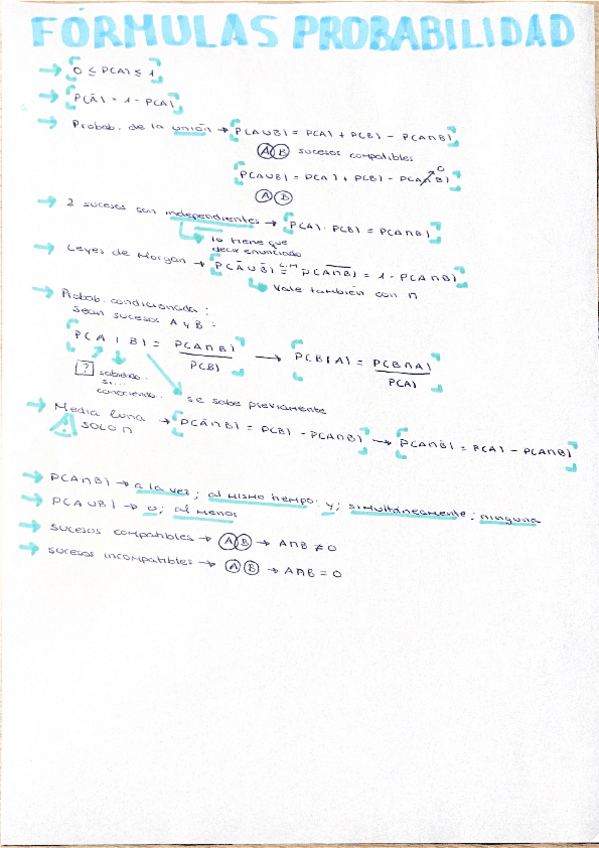 FÓRMULAS PROBABILIDAD
→ 0 ≤ P(A) ≤ 1
→ P(Ā) = 1 - P(A)
→ Probab. de la unión → P(A∪B) = P(A) + P(B) - P(A∩B)
A B sucesos compatibles
P(A∪B) = P(A) + P(B) - P(A∩B) 0
A B
→ 2 sucesos son independientes → P(A) · P(B) = P(A∩B)
lo tiene que
decir enunciado
→ Leyes de Morgan → P(Ā∪B̄) L.M = P(A∩B)‾ = 1 - P(A∩B)
Vale también con ∩
→ Probab. condicionada:
Sean sucesos A y B:
P(A|B) = P(A∩B) / P(B) → P(B|A) = P(B∩A) / P(A)
? sabiendo.
si...
conociendo.
se sabe previamente
→ Media luna → P(Ā∩B) = P(B) - P(A∩B) → P(A∩B̄) = P(A) - P(A∩B)
! SOLO ∩
→ P(A∩B) → a la vez; al mismo tiempo; y; simultáneamente; ninguna
→ P(A∪B) → o; al menos
→ sucesos compatibles → A B → A∩B ≠ 0
→ sucesos incompatibles → A B → A∩B = 0